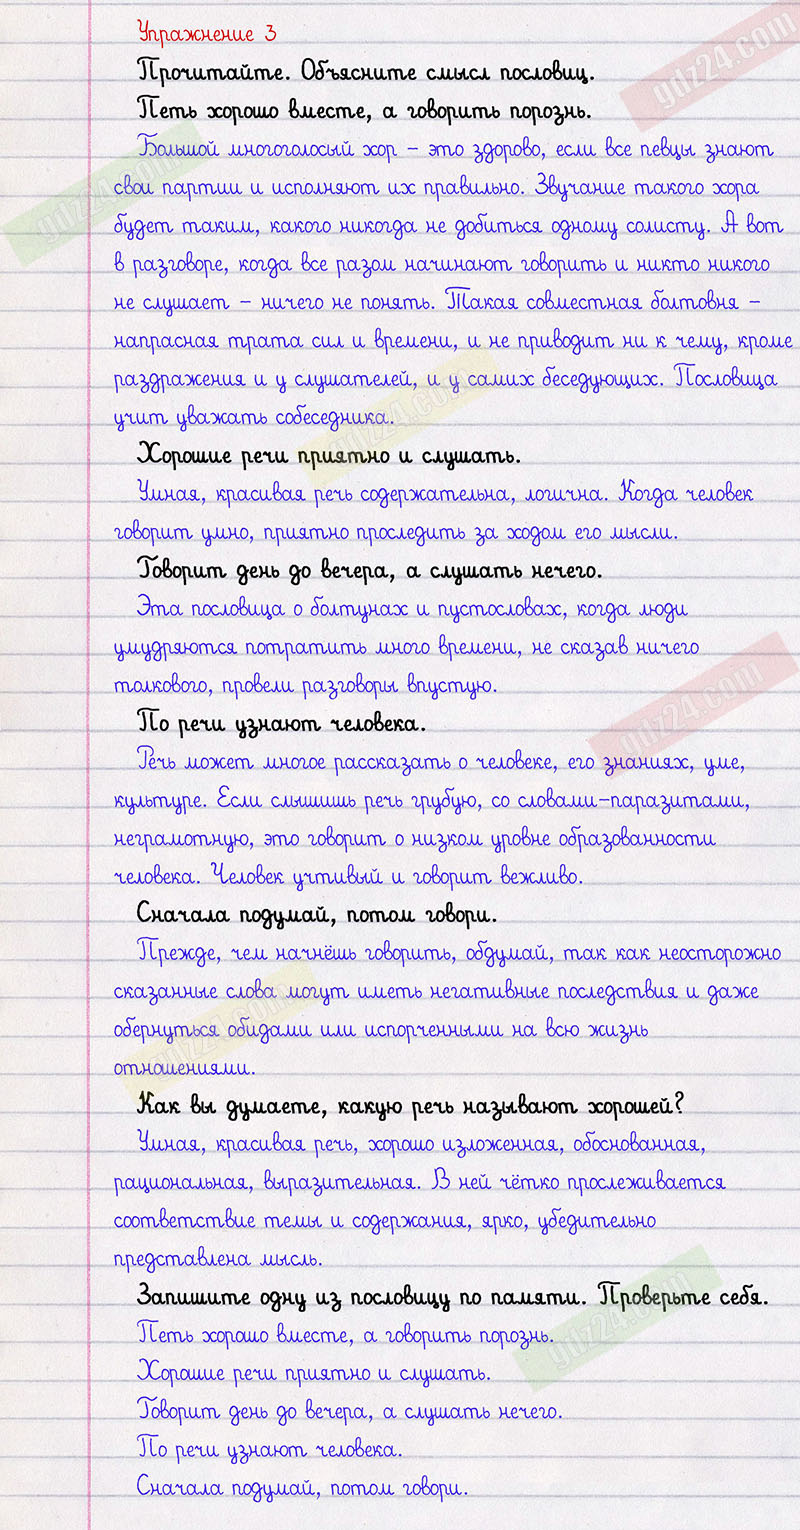 Упражнение 3
Прочитайте. Объясните смысл пословиц.
Петь хорошо вместе, а говорить порознь.
Большой многоголосый хор – это здорово, если все певцы знают
свои партии и исполняют их правильно. Звучание такого хора
будет таким, какого никогда не добиться одному солисту. А вот
в разговоре, когда все разом начинают говорить и никто никого
не слушает – ничего не понять. Такая совместная болтовня –
напрасная трата сил и времени, и не приводит ни к чему, кроме
раздражения и у слушателей, и у самих беседующих. Пословица
учит уважать собеседника.
Хорошие речи приятно и слушать.
Умная, красивая речь содержательна, логична. Когда человек
говорит умно, приятно проследить за ходом его мысли.
Говорит день до вечера, а слушать нечего.
Эта пословица о болтунах и пустословах, когда люди
умудряются потратить много времени, не сказав ничего
толкового, провели разговоры впустую.
По речи узнают человека.
Речь может многое рассказать о человеке, его знаниях, уме,
культуре. Если слышишь речь грубую, со словами-паразитами,
неграмотную, это говорит о низком уровне образованности
человека. Человек учтивый и говорит вежливо.
Сначала подумай, потом говори.
Прежде, чем начнёшь говорить, обдумай, так как неосторожно
сказанные слова могут иметь негативные последствия и даже
обернуться обидами или испорченными на всю жизнь
отношениями.
Как вы думаете, какую речь называют хорошей?
Умная, красивая речь, хорошо изложенная, обоснованная,
рациональная, выразительная. В ней чётко прослеживается
соответствие темы и содержания, ярко, убедительно
представлена мысль.
Запишите одну из пословицу по памяти. Проверьте себя.
Петь хорошо вместе, а говорить порознь.
Хорошие речи приятно и слушать.
Говорит день до вечера, а слушать нечего.
По речи узнают человека.
Сначала подумай, потом говори.
gdz24.com
gdz24.com
gdz24.com
gdz24.com
gdz24.com
gdz24.com